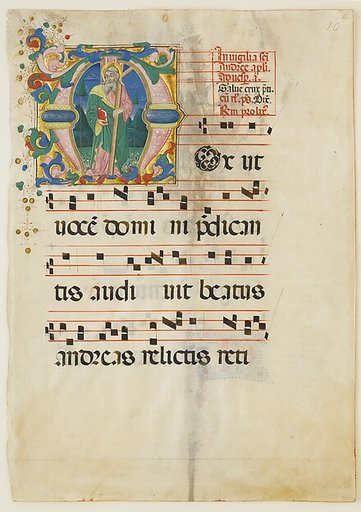 In vigilia sci
andree apli.
ad vesp̃. a.
Salve crux
℟m. prolix̃.
Mox ut
vocē domi ni p̃dican
tis audi uit beatus
andreas relictis reti